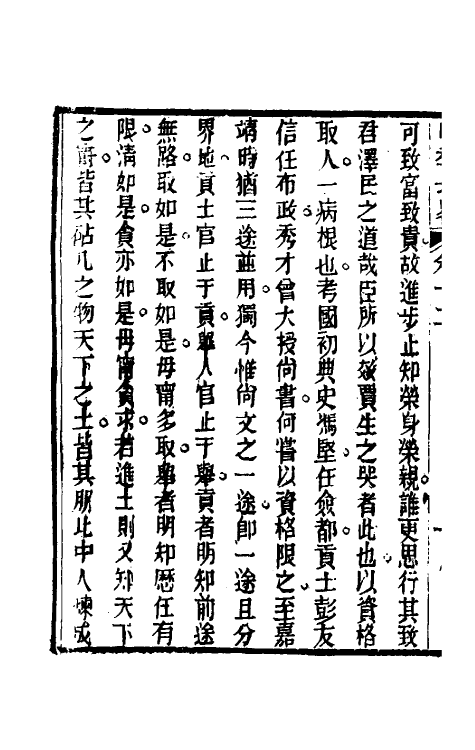 可致富致貴故進步止知榮身榮親誰更思行其致
君澤民之道哉臣所以發賈生之哭者此也以資格
取人一病根也考國初典史馮堅任僉都貢士彭友
信任布政秀才曾大授尚書何嘗以資格限之至嘉
靖時猶三途並用獨今惟尚文之一途即一途且分
界地貢士官止于貢舉人官止于舉貢者明知前途
無路取如是不取如是毋甯多取舉者明知歷任有
限清如是貪亦如是毋甯貪求若進士則又知天下
之爵皆其砧几之物天下之士皆其朋比中人煉成